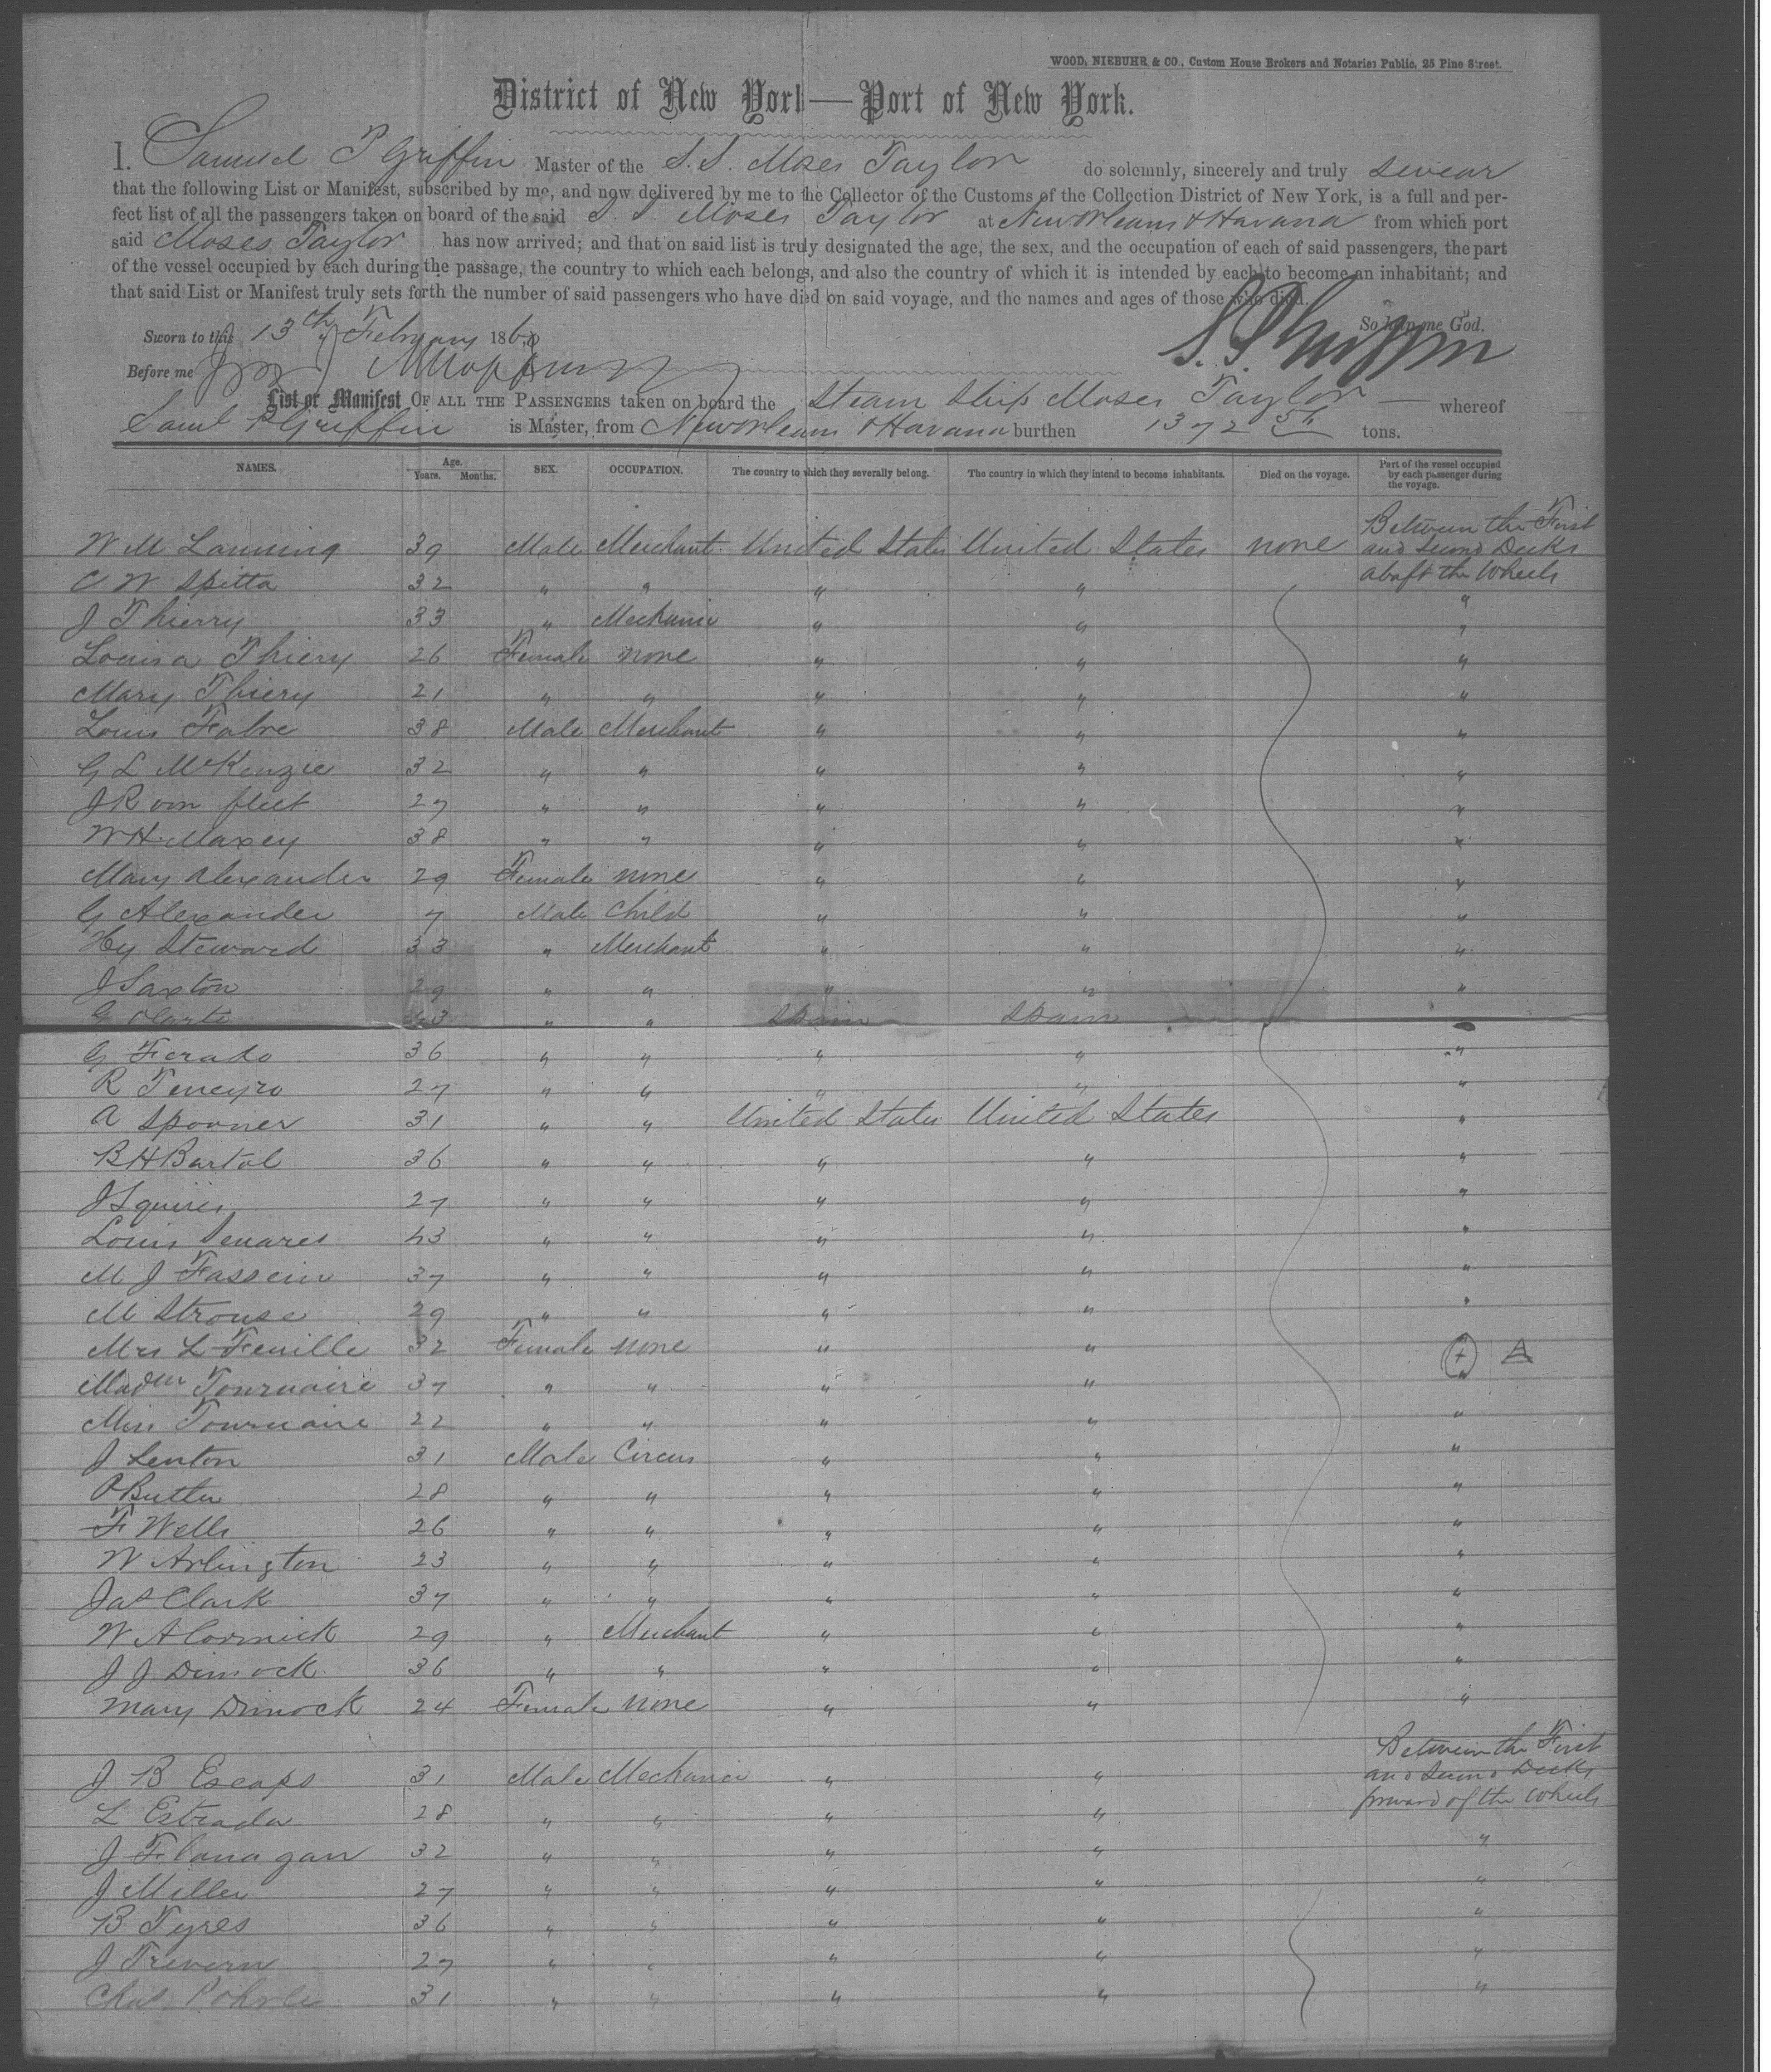 WOOD, NIEBUHR & CO., Custom House Brokers and Notaries Public, 25 Pine Street.
District of New York — Port of New York.
I, Samuel P Griffin Master of the S. S. Moses Taylor do solemnly, sincerely and truly swear
that the following List or Manifest, subscribed by me, and now delivered by me to the Collector of the Customs of the Collection District of New York, is a full and per-
fect list of all the passengers taken on board of the said S. S. Moses Taylor at New Orleans & Havana from which port
said Moses Taylor has now arrived; and that on said list is truly designated the age, the sex, and the occupation of each of said passengers, the part
of the vessel occupied by each during the passage, the country to which each belongs, and also the country of which it is intended by each to become an inhabitant; and
that said List or Manifest truly sets forth the number of said passengers who have died on said voyage, and the names and ages of those who died.
So help me God.
Sworn to this 13th February 1860
Before me
List or Manifest OF ALL THE PASSENGERS taken on board the Steam Ship Moses Taylor — whereof
Saml P Griffin is Master, from New Orleans & Havana burthen 1372 tons.
NAMES. Age. Years. Months. SEX. OCCUPATION. The country to which they severally belong. The country in which they intend to become inhabitants. Died on the voyage. Part of the vessel occupied by each passenger during the voyage.
W M Lanning 39 Male Merchant United States United States none Between the First and Second Decks abaft the Wheels
C W Spitta 32 " " " " "
J Thierry 33 " Mechanic " " "
Louisa Thiery 26 Female none " " "
Mary Thiery 21 " " " " "
Louis Fabre 38 Male Merchant " " "
G L McKenzie 32 " " " " "
J R van fleet 27 " " " " "
W H Maxey 38 " " " " "
Mary Alexander 29 Female none " " "
G Alexander 7 Male Child " " "
Hy Steward 33 " Merchant " " "
J Saxton 29 " " " " "
G Olarte 43 " " Spain Spain
G Ferado 36 " " " " "
R Teneyro 27 " " " " "
A Spooner 31 " " United States United States "
B H Bartol 36 " " " " "
J Squires 27 " " " " "
Louis 43 " " " " "
M J Fassein 37 " " " " "
M Strouse 29 " " " " "
Mrs L Feuille 32 Female none " " + A
Madm Tournaire 37 " " " " "
Miss Tournaire 22 " " " " "
J Lenton 31 Male Circus " " "
A Butler 28 " " " " "
F Wells 26 " " " " "
W Arlington 23 " " " " "
Jas Clark 37 " " " " "
W A Cormick 29 " Merchant " " "
J J Dimock 36 " " " " "
Mary Dimock 24 Female none " " "
J B Escaps 31 Male Mechanic " " Between the First and Second Decks forward of the Wheels
L Estrada 28 " " " "
J Flanagan 32 " " " " "
J Miller 27 " " " " "
B Tyres 36 " " " " "
J Trevern 27 " " " " "
Chas 31 " " " " "